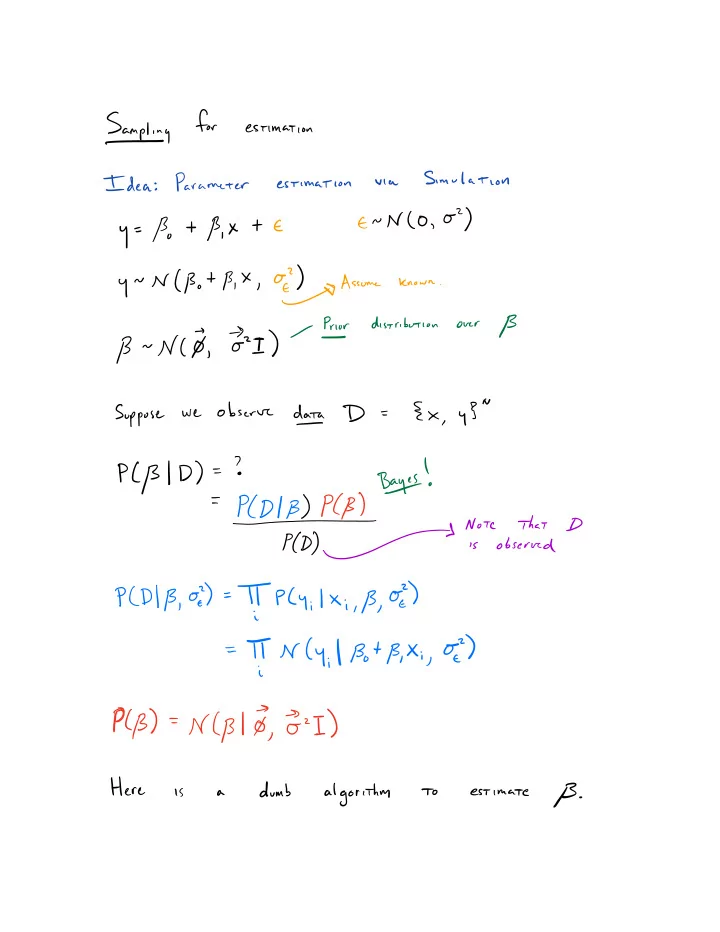 Sampling for estimation
Idea: Parameter estimation via Simulation
y = β₀ + β₁x + ε    ε ~ N(0, σ²)
y ~ N(β₀ + β₁x, σ²_ε)    Assume known.
β ~ N(0⃗, σ⃗²I)    Prior distribution over β
Suppose we observe data D = {x, y}ᴺ
P(β|D) = ?
= P(D|β) P(β) / P(D)    Bayes!
Note that D
is observed
P(D|β, σ²_ε) = ∏_i P(y_i | x_i, β, σ²_ε)
= ∏_i N(y_i | β₀ + β₁x_i, σ²_ε)
P(β) = N(β | 0⃗, σ⃗²I)
Here is a dumb algorithm to estimate β.